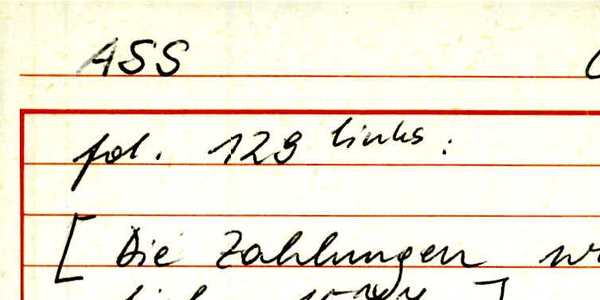 ASS
fol. 129 links:
[ Die Zahlungen